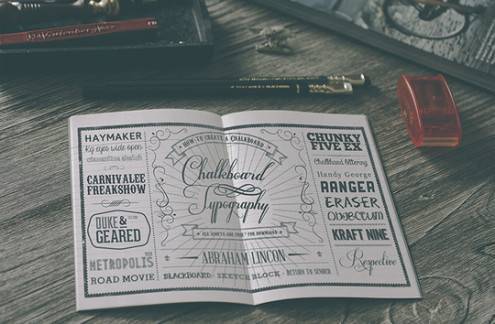 HAYMAKER
Kg eyes wide open
CARNIVALEE
FREAKSHOW
DUKE &
GEARED
METROPOLIS
ROAD MOVIE
HOW TO CREATE A CHALKBOARD
Chalkboard
Typography
ABRAHAM LINCON
BLACKBOARD · SKETCH BLOCK · RETURN TO SENDER
CHUNKY
FIVE EX
Chalkhand lettering
Handy George
RANGER
ERASER
OBJECTUM
KRAFT NINE
Respective